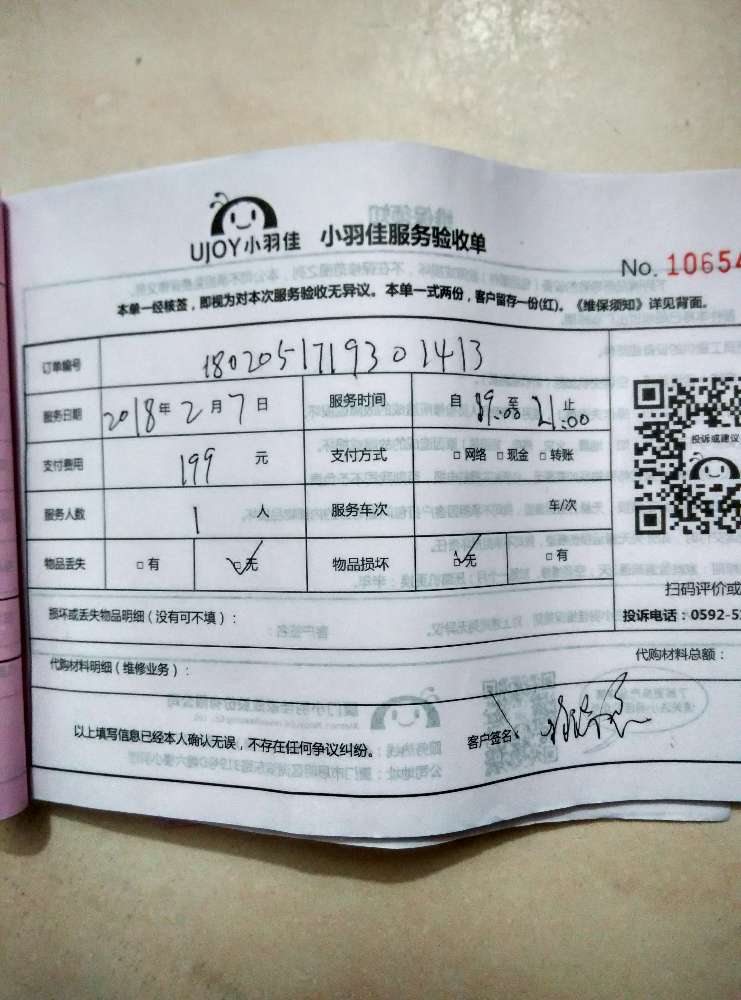 UJOY小羽佳 小羽佳服务验收单
No. 10654
本单一经核签，即视为对本次服务验收无异议。本单一式两份，客户留存一份(红)。《维保须知》详见背面。
订单编号 180205171930 1413
服务日期 2018年2月7日 服务时间 自 至 21:00 止
支付费用 199 元 支付方式 □网络 □现金 □转账
投诉或建议
服务人数 1 人 服务车次 车/次
物品丢失 □有 □无 物品损坏 □无 □有
扫码评价或
损坏或丢失物品明细（没有可不填）：
投诉电话：0592-5
代购材料明细（维修业务）： 代购材料总额：
以上填写信息已经本人确认无误，不存在任何争议纠纷。 客户签名：